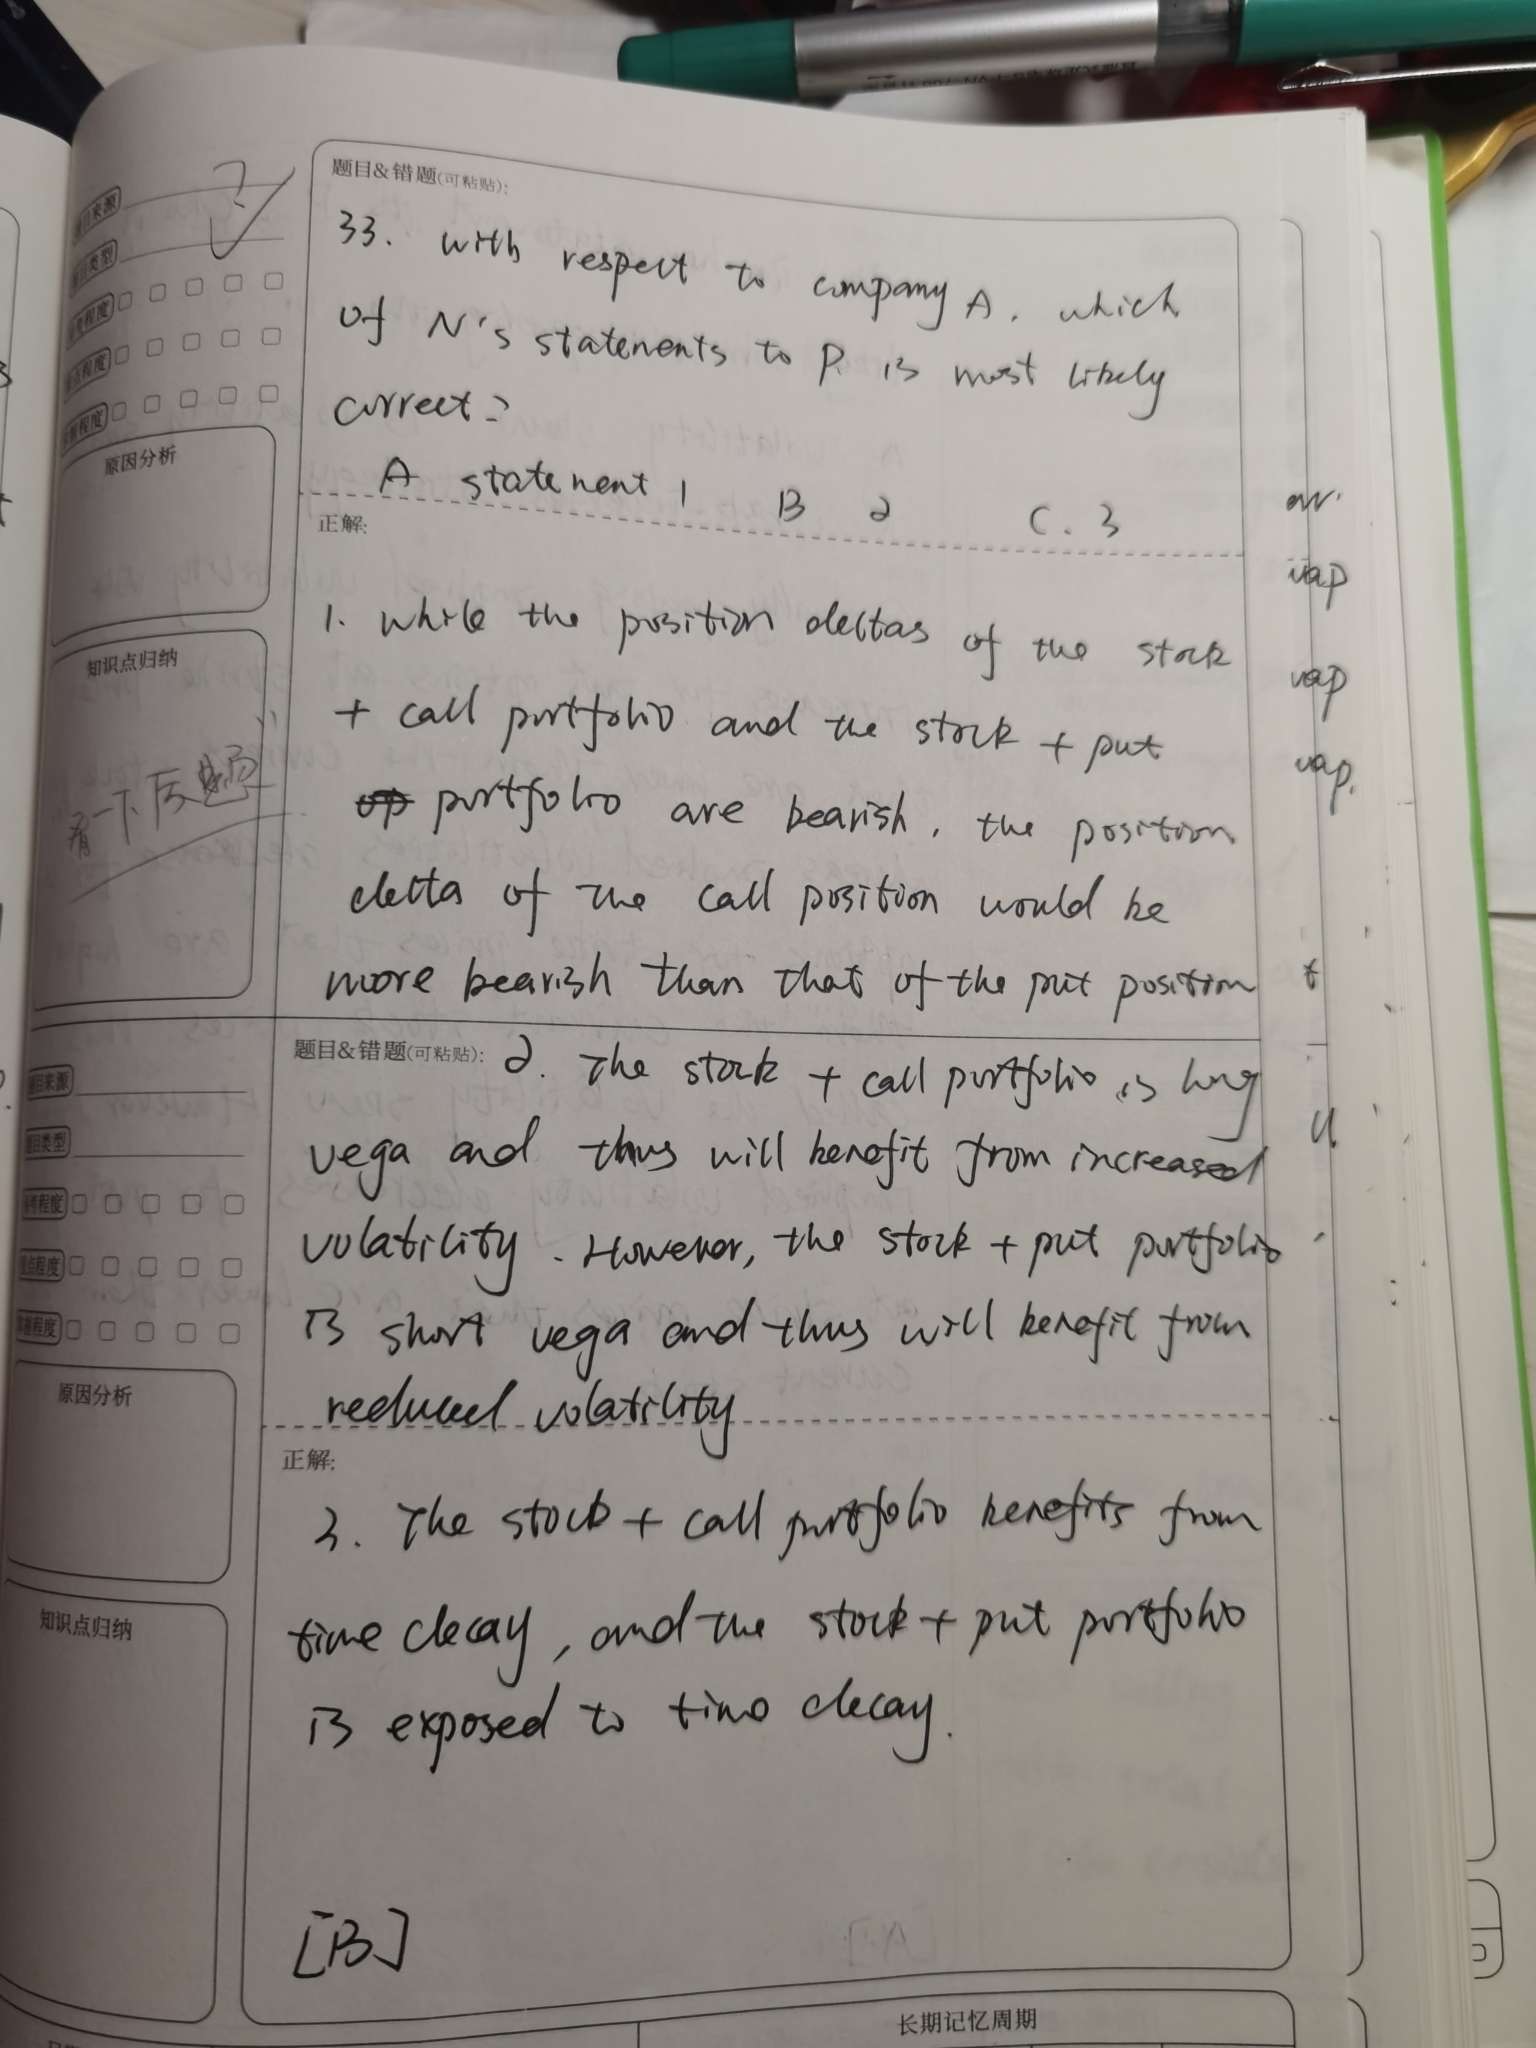 题目来源
题目类型
题目&错题(可粘贴):
33. with respect to company A. which
of N's statements to P. is most likely
correct?
A statement 1 B 2 C. 3
原因分析
正解:
知识点归纳
看一下原题
1. while the position deltas of the stock
+ call portfolio and the stock + put
portfolio are bearish, the position
delta of the call position would be
more bearish than that of the put position
题目来源
题目类型
题目&错题(可粘贴):
2. The stock + call portfolio is long
vega and thus will benefit from increased
volatility. However, the stock + put portfolio
is short vega and thus will benefit from
reduced volatility
原因分析
正解:
知识点归纳
3. The stock + call portfolio benefits from
time decay, and the stock + put portfolio
is exposed to time decay.
[B]
长期记忆周期